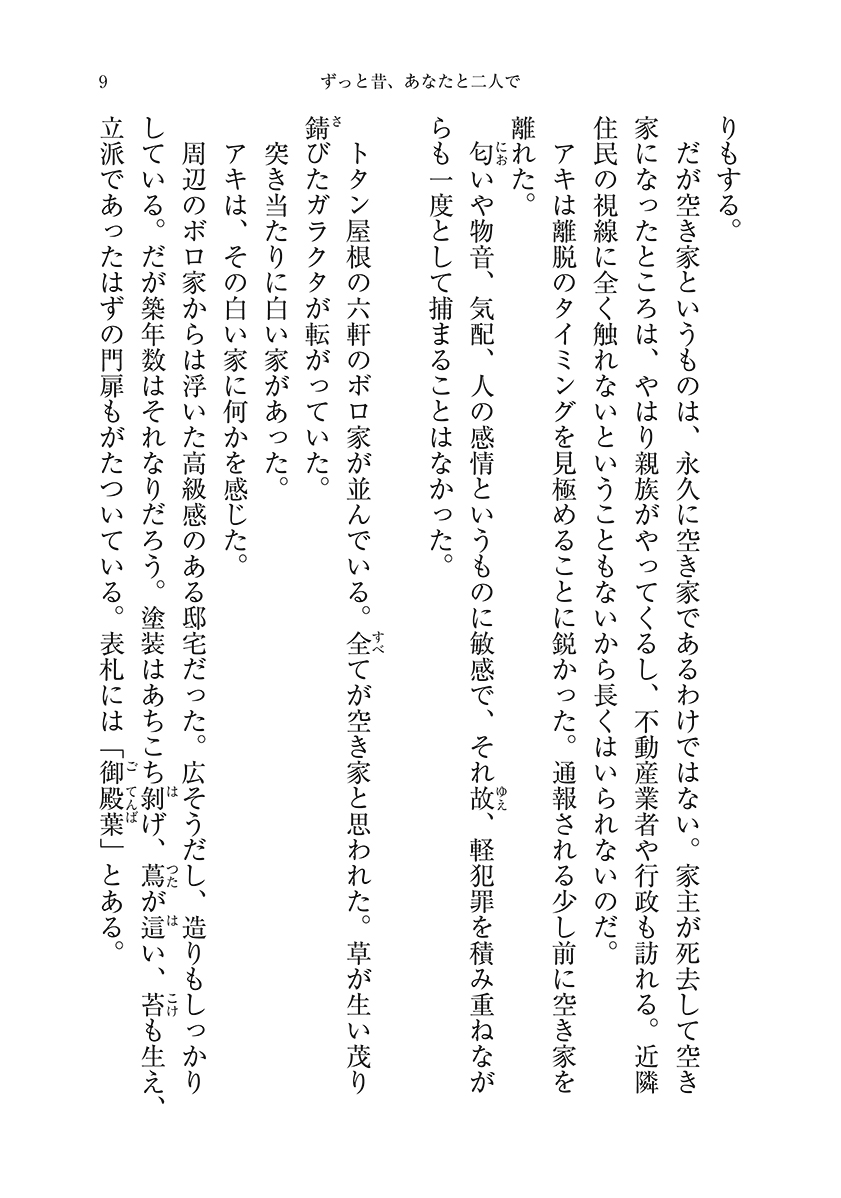 9
ずっと昔、あなたと二人で
りもする。
だが空き家というものは、永久に空き家であるわけではない。家主が死去して空き
家になったところは、やはり親族がやってくるし、不動産業者や行政も訪れる。近隣
住民の視線に全く触れないということもないから長くはいられないのだ。
アキは離脱のタイミングを見極めることに鋭かった。通報される少し前に空き家を
離れた。
匂いや物音、気配、人の感情というものに敏感で、それ故、軽犯罪を積み重ねなが
らも一度として捕まることはなかった。
トタン屋根の六軒のボロ家が並んでいる。全てが空き家と思われた。草が生い茂り
錆びたガラクタが転がっていた。
突き当たりに白い家があった。
アキは、その白い家に何かを感じた。
周辺のボロ家からは浮いた高級感のある邸宅だった。広そうだし、造りもしっかり
している。だが築年数はそれなりだろう。塗装はあちこち剝げ、蔦が這い、苔も生え、
立派であったはずの門扉もがたついている。表札には「御殿葉」とある。